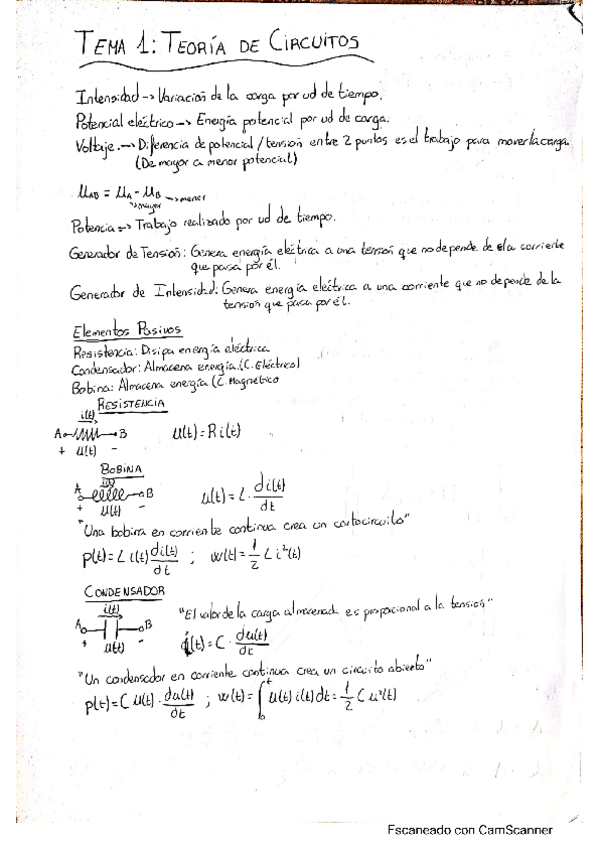 TEMA 1: TEORÍA DE CIRCUITOS
Intensidad -> Variación de la carga por ud de tiempo.
Potencial eléctrico -> Energía potencial por ud de carga.
Voltaje. -> Diferencia de potencial / tensión entre 2 puntos es el trabajo para mover la carga.
(De mayor a menor potencial)
U_AB = U_A - U_B -> menor
-> mayor
Potencia => Trabajo realizado por ud de tiempo.
Generador de Tensión: Genera energía eléctrica a una tensión que no depende de la corriente
que pasa por él.
Generador de Intensidad: Genera energía eléctrica a una corriente que no depende de la
tensión que pasa por él.
Elementos Pasivos
Resistencia: Disipa energía eléctrica
Condensador: Almacena energía (C. Eléctrico)
Bobina: Almacena energía (C. Magnético
RESISTENCIA
i(t)
A B u(t) = R i(t)
+ u(t) -
BOBINA
i(t)
A B u(t) = L · di(t)/dt
+ u(t) -
"Una bobina en corriente continua crea un cortocircuito"
p(t) = L i(t) di(t)/dt ; w(t) = 1/2 L i²(t)
CONDENSADOR
i(t)
A B "El valor de la carga almacenada es proporcional a la tensión"
+ u(t) - i(t) = C · du(t)/dt
"Un condensador en corriente continua crea un circuito abierto"
p(t) = C u(t) · du(t)/dt ; w(t) = ∫₀ᵗ u(t) i(t) dt = 1/2 C u²(t)
Escaneado con CamScanner